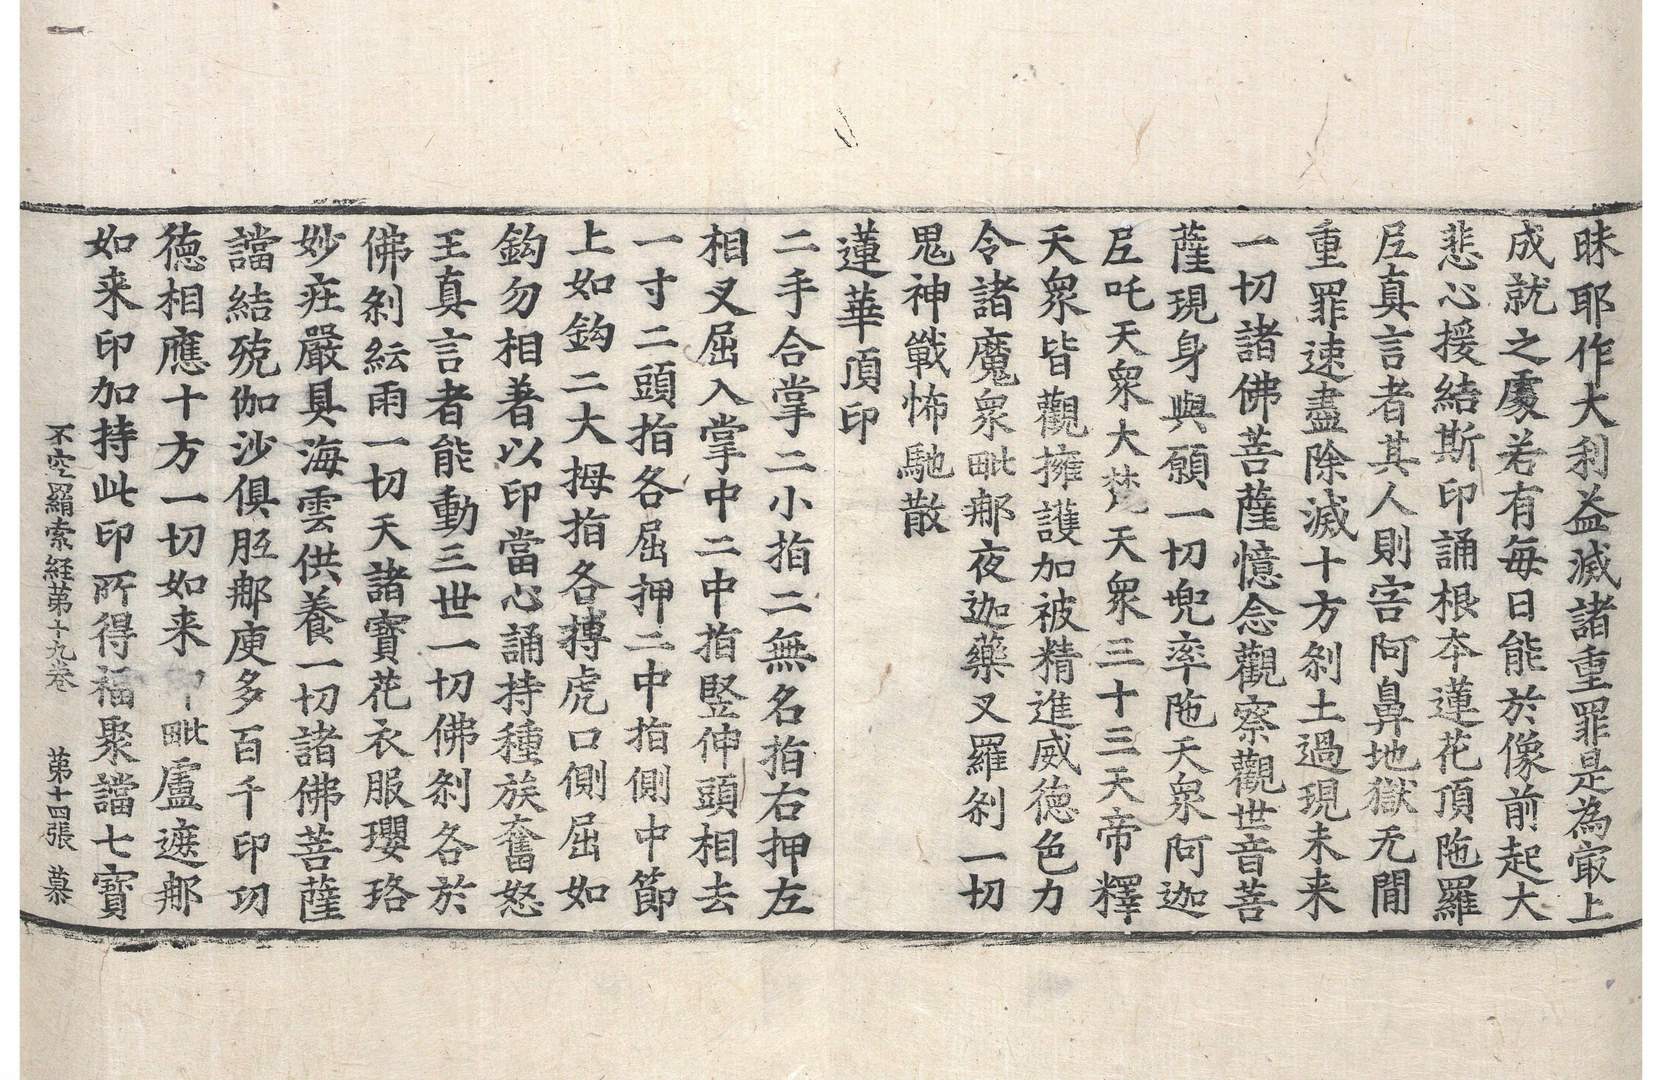 昧耶作大利益滅諸重罪是為㝡上
成就之處若有每日能於像前起大
悲心援結斯印誦根本蓮花頂陁羅
𡰱真言者其人則害阿鼻地獄无間
重罪速盡除滅十方刹土過現未来
一切諸佛菩薩憶念觀察觀世音菩
薩現身與願一切兜率陁天衆阿迦
𡰱吒天衆大梵天衆三十三天帝釋
天衆皆觀擁護加被精進威德色力
令諸魔衆毗郍夜迦藥叉羅刹一切
鬼神戰怖馳散
蓮華頂印
二手合掌二小指二無名指右押左
相叉屈入掌中二中指竪伸頭相去
一寸二頭指各屈押二中指側中節
上如鈎二大拇指各搏虎口側屈如
鈎勿相著以印當心誦持種族奮怒
王真言者能動三世一切佛刹各於
佛刹紜雨一切天諸寶花衣服瓔珞
妙疰嚴具海雲供養一切諸佛菩薩
讜結殑伽沙俱胝郍庾多百千印功
德相應十方一切如来印毗盧遮郍
如来印加持此印所得福聚讜七寶
不空羂索経第十九卷 第十四張 慕